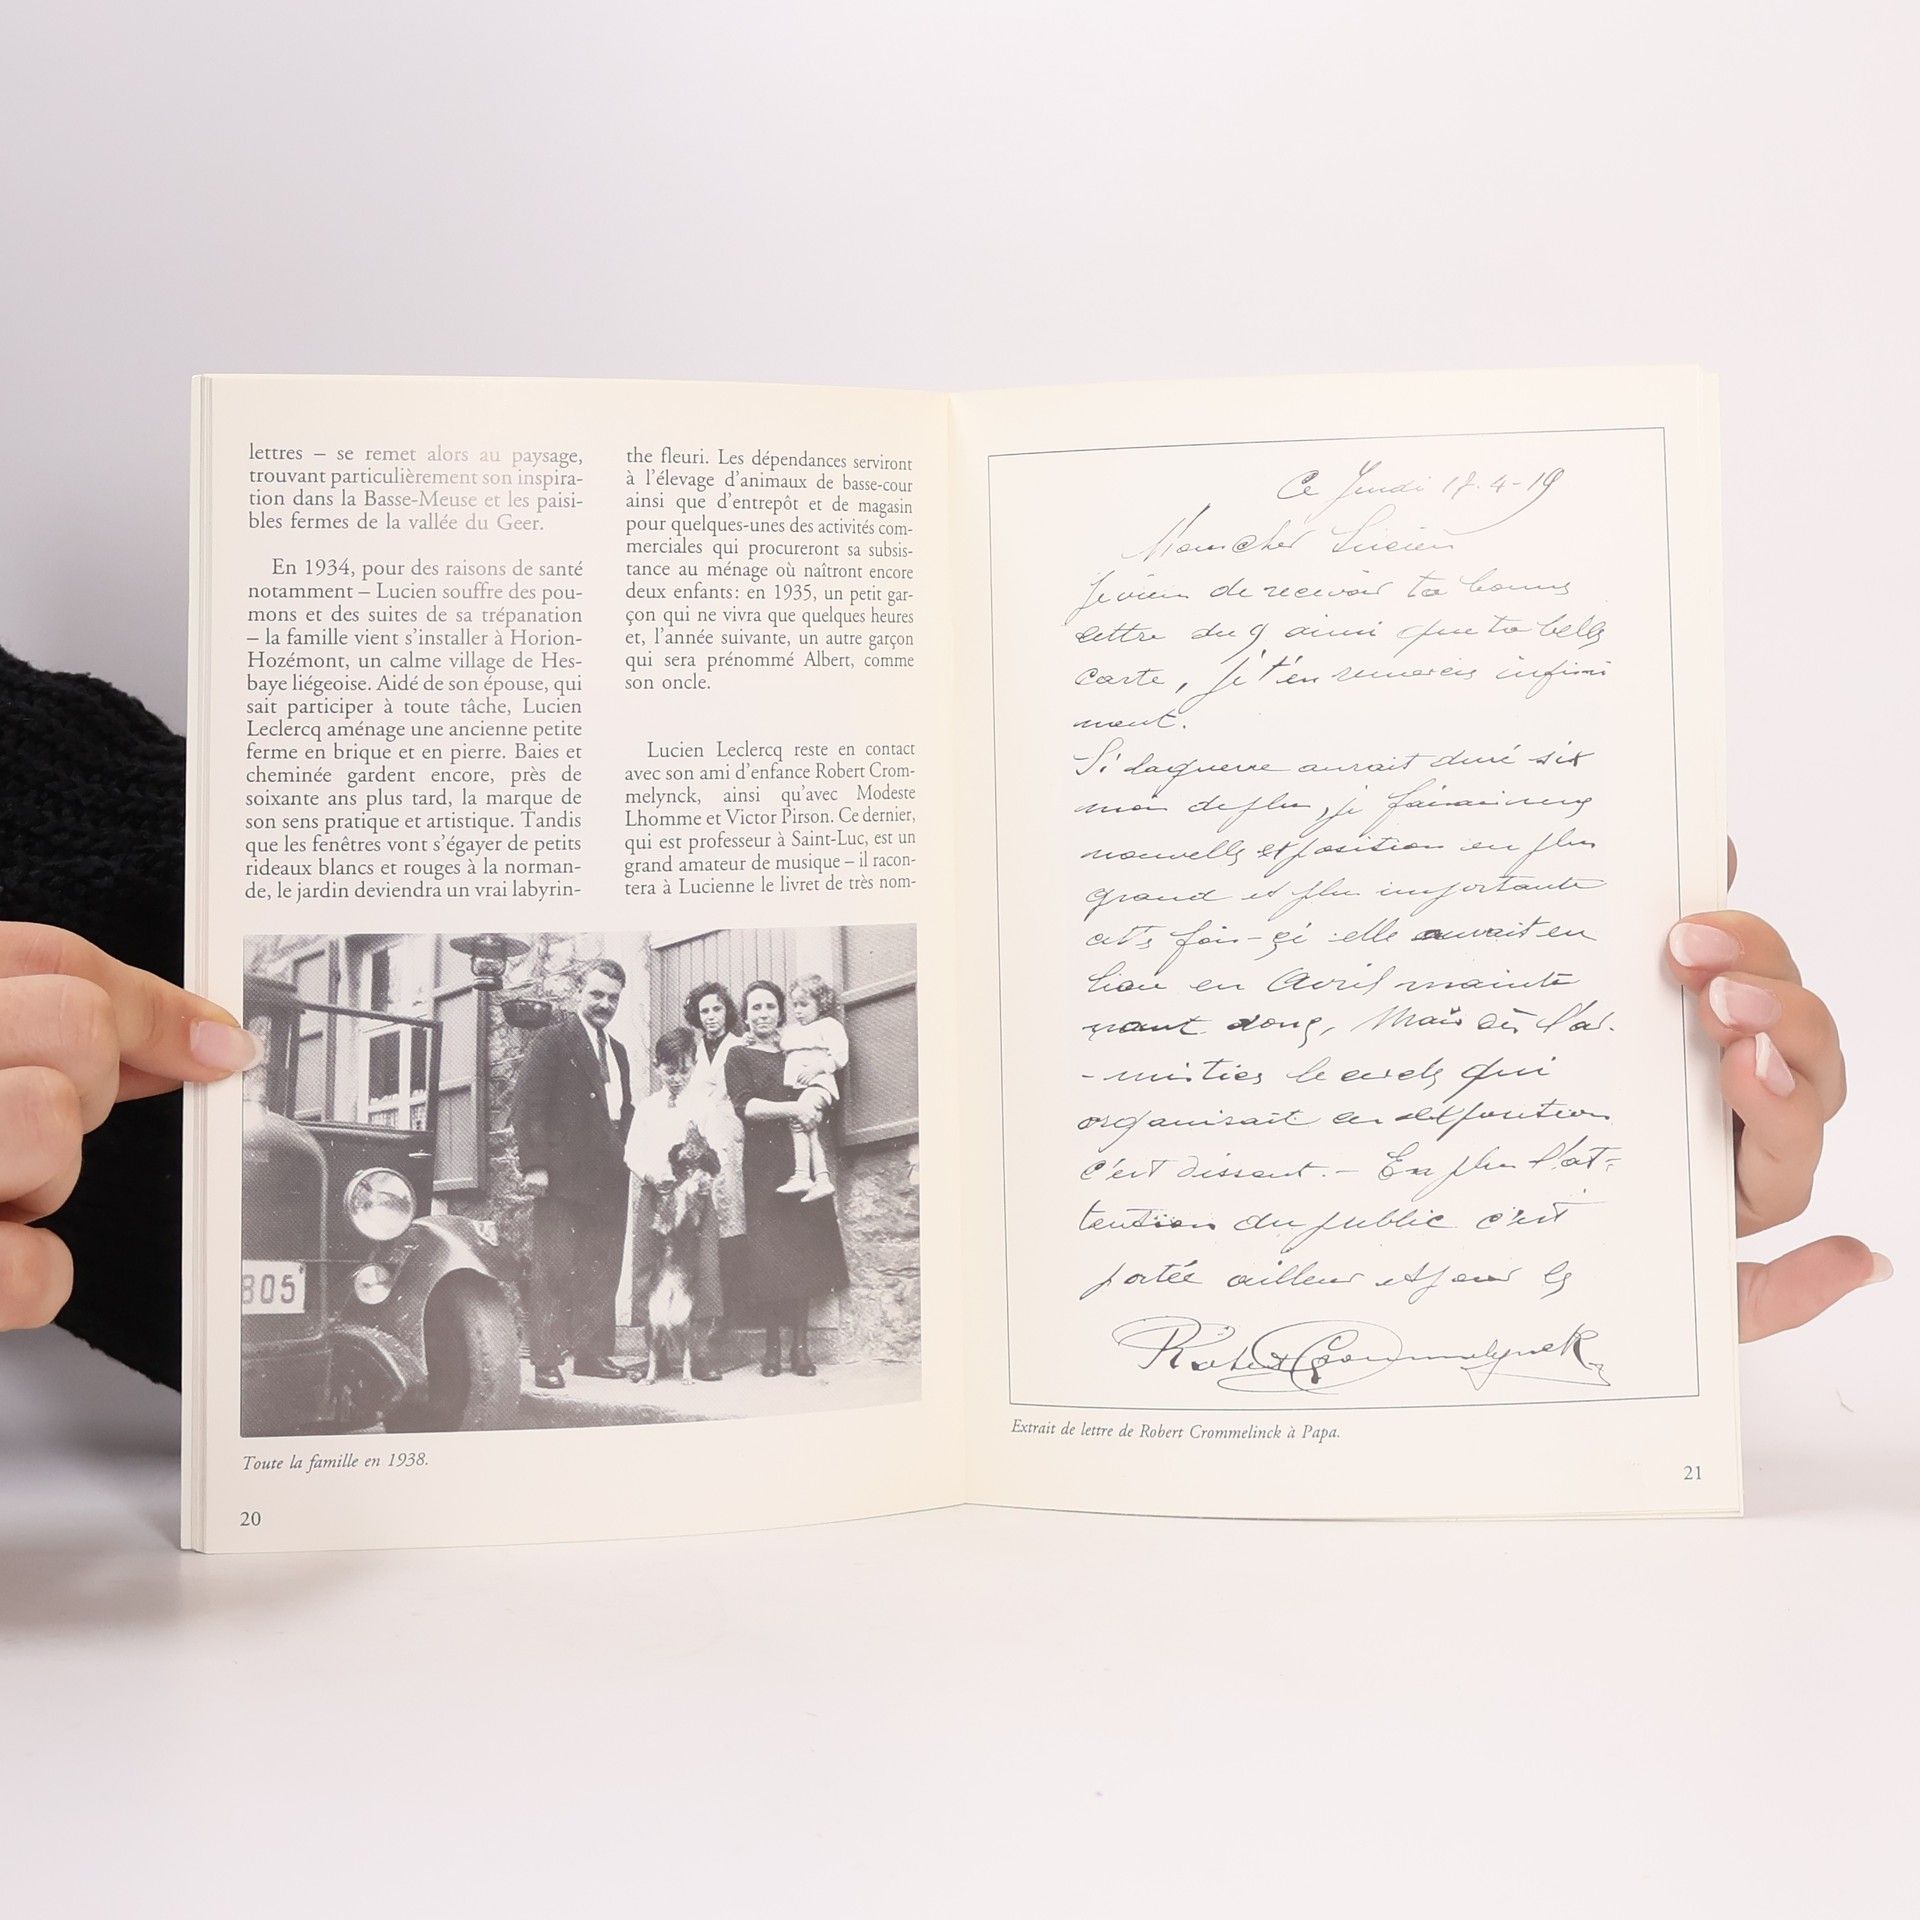 lettres – se remet alors au paysage,
trouvant particulièrement son inspira-
tion dans la Basse-Meuse et les paisi-
bles fermes de la vallée du Geer.
En 1934, pour des raisons de santé
notamment – Lucien souffre des pou-
mons et des suites de sa trépanation
– la famille vient s'installer à Horion-
Hozémont, un calme village de Hes-
baye liégeoise. Aidé de son épouse, qui
sait participer à toute tâche, Lucien
Leclercq aménage une ancienne petite
ferme en brique et en pierre. Baies et
cheminée gardent encore, près de
soixante ans plus tard, la marque de
son sens pratique et artistique. Tandis
que les fenêtres vont s'égayer de petits
rideaux blancs et rouges à la norman-
de, le jardin deviendra un vrai labyrin-
the fleuri. Les dépendances serviront
à l'élevage d'animaux de basse-cour
ainsi que d'entrepôt et de magasin
pour quelques-unes des activités com-
merciales qui procureront sa subsis-
tance au ménage où naîtront encore
deux enfants: en 1935, un petit gar-
çon qui ne vivra que quelques heures
et, l'année suivante, un autre garçon
qui sera prénommé Albert, comme
son oncle.
Lucien Leclercq reste en contact
avec son ami d'enfance Robert Crom-
melynck, ainsi qu'avec Modeste
Lhomme et Victor Pirson. Ce dernier,
qui est professeur à Saint-Luc, est un
grand amateur de musique – il racon-
tera à Lucienne le livret de très nom-
805
Toute la famille en 1938.
20
Ce Jeudi 17.4-19
Mon cher Lucien
Je viens de recevoir ta bonne
lettre du 9 ainsi que ta belle
carte, je t'en remercie infini
ment.
Si la guerre aurait duré six
mois de plus, je faisais une
nouvelle exposition en plus
grand et plus importante
cette fois-çi elle aurait eu
lieu en Avril mainte
nant donc, Mais dès l'ar-
-mistice le cercle qui
organisait ces exposition
c'est dissout. – En plus l'at-
tention du public c'est
portée ailleur et pour les
Robert Crommelynck
Extrait de lettre de Robert Crommelinck à Papa.
21